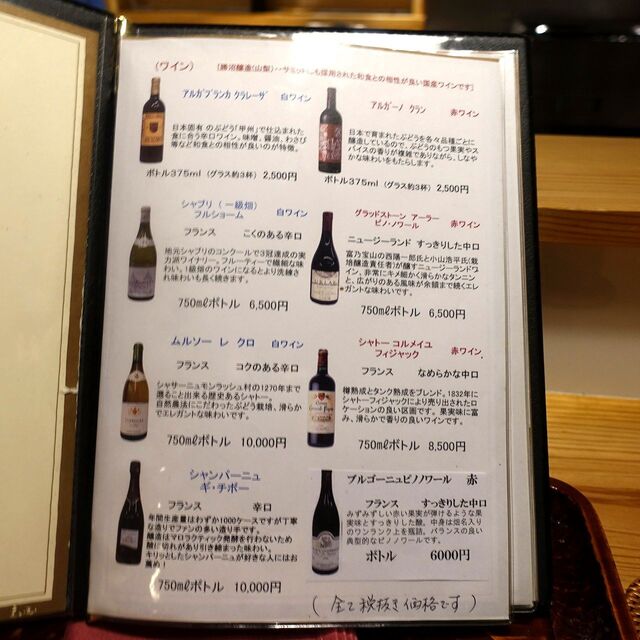 (ワイン) [勝沼醸造(山梨)・・サミットにも採用された和食との相性が良い国産ワインです]
アルガブランカ クラレーザ 白ワイン
日本固有 のぶどう「甲州」で仕込まれた
食に合う辛口ワイン。味噌、醤油、わさび
等など和食との相性が良いのが特徴。
ボトル375ml (グラス約3杯) 2,500円
アルガーノ クラン 赤ワイン
日本で育まれたぶどうを各々品種ごとに
醸造しているので、ぶどうのもつ果実やス
パイスの香りが複雑でありながら、しなや
かな味わいをもたらします。
ボトル375ml (グラス約3杯) 2,500円
シャブリ (一級畑)
フルショーム 白ワイン
フランス こくのある辛口
地元シャブリのコンクールで3冠達成の実
力派ワイナリー。フルーティーで繊細な味
わい。1級畑のワインになるとより洗練さ
れ味わいも長く続きます。
750mlボトル 6,500円
グラッドストーン アーラー
ピノ・ノワール 赤ワイン
ニュージーランド すっきりした中口
富乃宝山の西陽一郎氏と小山浩平氏(栽
培醸造責任者)が醸すニュージーランドワ
イン、非常にキメ細かく滑らかなタンニン
と、広がりのある風味が余韻まで続くエレ
ガントな味わいです。
750mlボトル 6,500円
ムルソー レ クロ 白ワイン
フランス コクのある辛口
シャサーニュモンラッシュ村の1270年まで
遡ること出来る歴史あるシャトー。
自然農法にこだわったぶどう栽培、滑らか
でエレガントな味わいです。
750mlボトル 10,000円
シャトー コルメイユ
フィジャック 赤ワイン
フランス なめらかな中口
樽熟成とタンク熟成をブレンド。1832年に
シャトーフィジャックにより売り出されたロ
ケーションの良い区画です。果実味に富
み、滑らかで香りの良いワインです。
750mlボトル 8,500円
シャンパーニュ
ギ・チボー
フランス 辛口
年間生産量はわずか1000ケースですが丁寧
な造りでファンの多い造り手です。
醸造はマロラクティック発酵を行わないため
酸に切れがあり引き締まった味わい。
キリッとしたシャンパーニュが好きな人にはお
薦め!
750mlボトル 10,000円
ブルゴーニュピノノワール 赤
フランス すっきりした中口
みずみずしい赤い果実が弾けるような果
実味とすっきりした酸。中身は畑名入り
のワンランク上を瓶詰。バランスの良い
典型的なピノノワールです。
ボトル 6000円
(全て税抜き価格です)